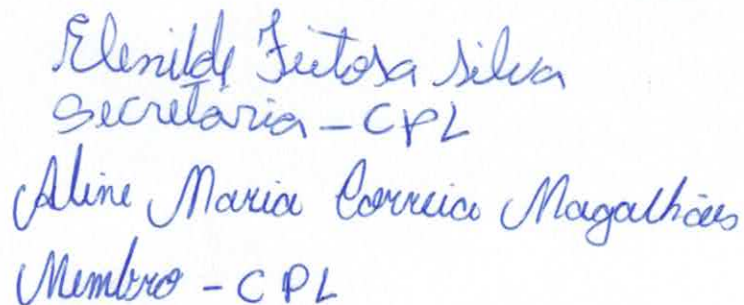 Elenilde Feitosa Silva
Secretária - CPL
Aline Maria Correia Magalhães
Membro - CPL